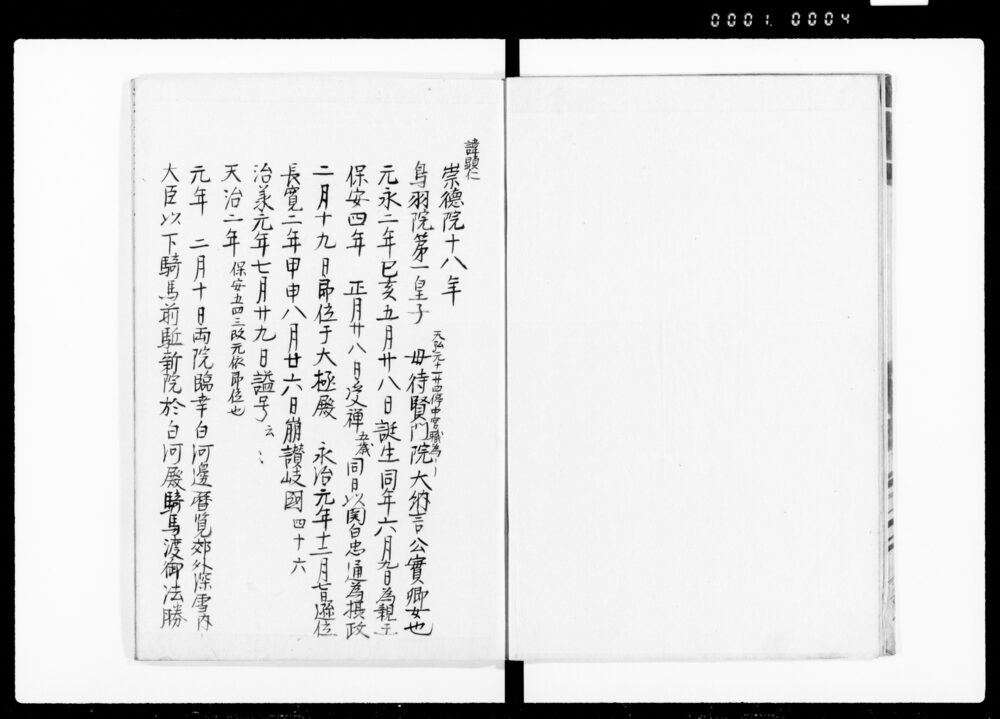 0001. 0004
諱顕仁
崇德院十八年
鳥羽院第一皇子 母待賢門院大納言公實卿女也
天弘元十一廿四停中宮職為
元永二年己亥五月廿八日誕生同年六月九日為親王
保安四年 正月廿八日受禅五歲同日以関白忠通為摂政
二月十九日即位于大極殿 永治元年十二月七日遜位
長寛二年甲申八月廿六日崩讃岐國四十六
治美元年七月廿九日謚号云〻
天治二年保安五四三改元依即位也
元年 二月十日両院臨幸白河邊暦覧郊外深雪内
大臣以下騎馬前駈新院於白河殿騎馬渡御法勝